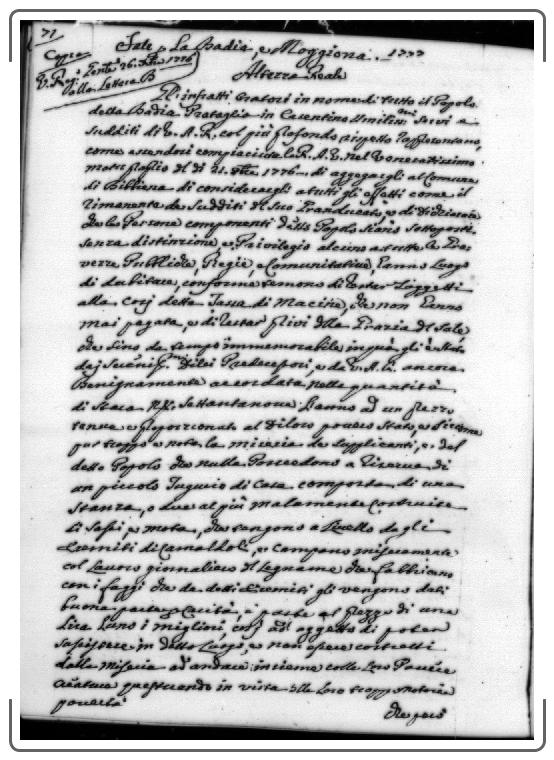 71
Sale, La Badia, e Moggiona. 1777
Copia
Altezza Reale
alla Lettera B
Gl'infratti Oratori in nome di tutto il Popolo
della Badia Prataglia in Casentino Umiliss.mi Servi e
Sudditi di V. A. R. col più profondo rispetto rappresentano,
come essendosi compiaciuta la R. A. V. nel Veneratissimo
motu proprio del dì 1776 di aggregargli al Comune
di Bibbiena di considerargli a tutti gli effetti come il
rimanente de Sudditi del Suo Granducato, e di dichiarare
che le Persone componenti detto Popolo siano Sottoposte
senza distinzione, o Privilegio alcuno a tutte le Gra-
vezze Pubbliche, Regie, e Comunitative, hanno luogo
di dubitare, conforme temono di restar Soggetti
alla così detta Tassa di Macine, che non hanno
mai pagata, e di restar privi della Grazia del Sale
che sino da tempo immemorabile in quà gli è stato
dai Predecessori, e da V. A. R. ancora
Benignamente accordata nelle quantità
di Staia Settantanove l'anno ad un prezzo
tenue, e proporzionato al di loro povero Stato, e siccome
pur troppo è nota la miseria de supplicanti, e del
detto Popolo che nulla Possiedono a riserva di
un piccolo Tugurio di Casa composta di una
Stanza, o due al più malamente Costruite
di Sassi, e mota, che tengono a Livello dagli
Eremiti di Camaldoli, e campano miseramente
col Lavoro giornaliero del Legname che fabbricano
con i faggi che da detti Eremiti gli vengono dati
buona parte per Carità, e parte al prezzo di una
Lira l'uno i migliori, così ad oggetto di poter
sussistere in detto Luogo, e non essere costretti
dalla miseria ad andare insieme colle loro Povere
Creature questuando in vista della loro troppo notoria
povertà
che però